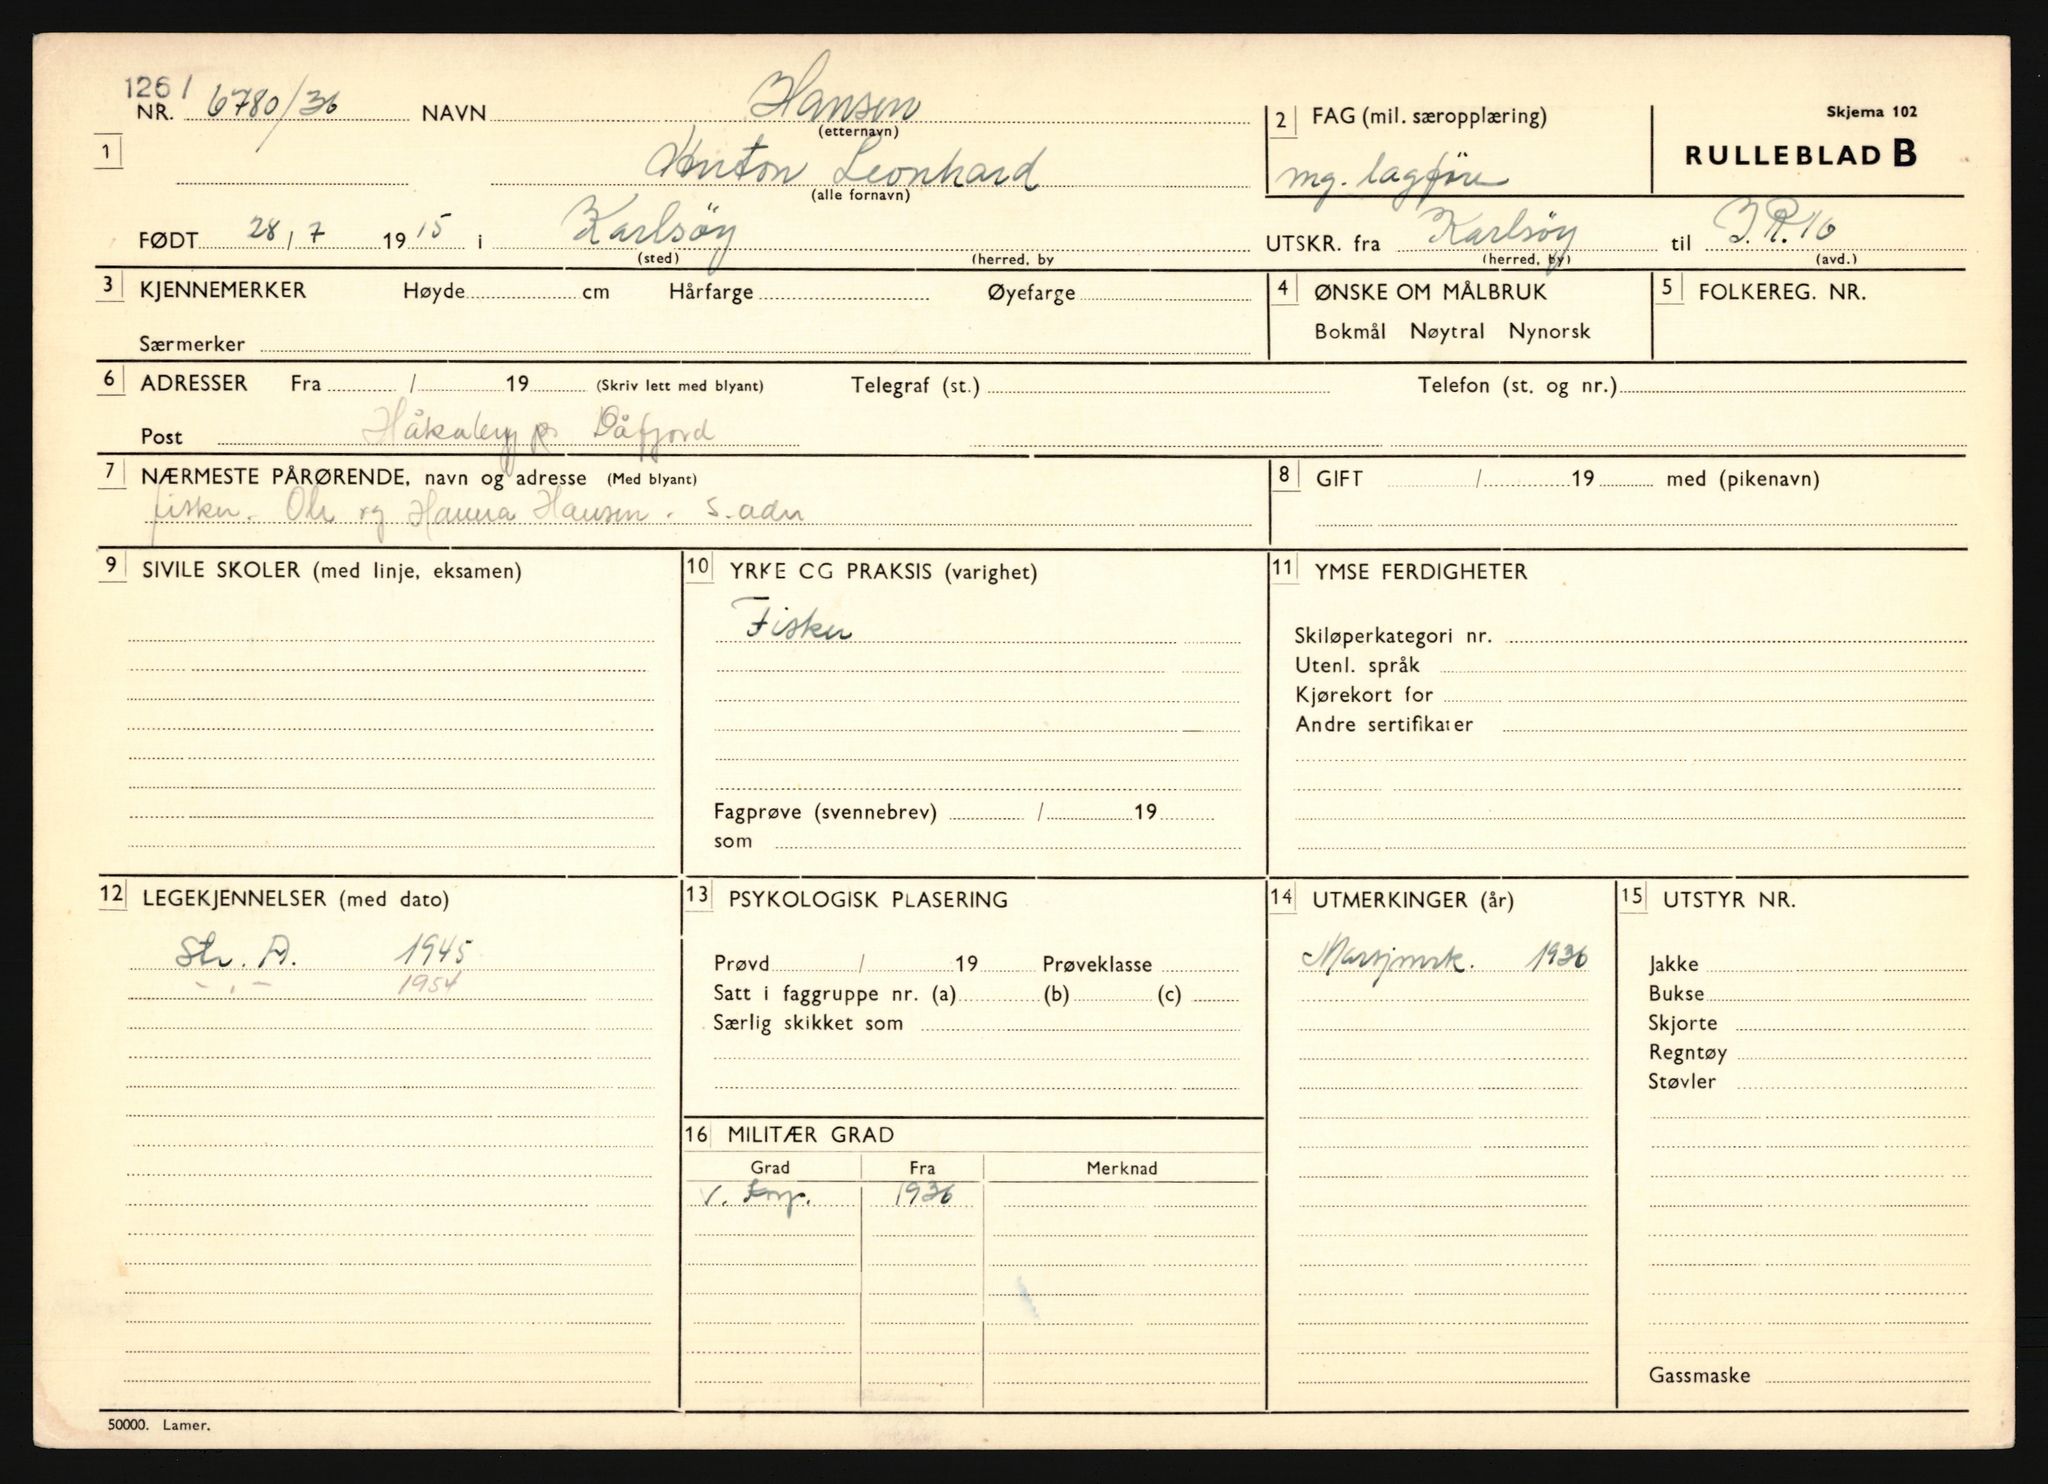 1261
NR. 6780/36 NAVN Hansen
(etternavn)
2 FAG (mil. særopplæring)
Skjema 102
RULLEBLAD B
1
Anton Leonhard
(alle fornavn)
mg. lagfører
FØDT 28/7 1915 i Karlsöy
(sted) (herred, by
UTSKR. fra Karlsöy til I.R.16
(herred, by) (avd.)
3 KJENNEMERKER Høyde cm Hårfarge Øyefarge
Særmerker
4 ØNSKE OM MÅLBRUK
Bokmål Nøytral Nynorsk
5 FOLKEREG. NR.
6 ADRESSER Fra / 19 (Skriv lett med blyant) Telegraf (st.) Telefon (st. og nr.)
Post Dåfjord
7 NÆRMESTE PÅRØRENDE, navn og adresse (Med blyant)
fisker. Ole og Hanna Hansen. s. adr
8 GIFT / 19 med (pikenavn)
9 SIVILE SKOLER (med linje, eksamen)
10 YRKE CG PRAKSIS (varighet)
Fisker
Fagprøve (svennebrev) / 19
som
11 YMSE FERDIGHETER
Skiløperkategori nr.
Utenl. språk
Kjørekort for
Andre sertifikater
12 LEGEKJENNELSER (med dato)
Str. A. 1945
- . - 1954
13 PSYKOLOGISK PLASERING
Prøvd / 19 Prøveklasse
Satt i faggruppe nr. (a) (b) (c)
Særlig skikket som
14 UTMERKINGER (år)
Marsjmrk. 1936
15 UTSTYR NR.
Jakke
Bukse
Skjorte
Regntøy
Støvler
Gassmaske
16 MILITÆR GRAD
Grad Fra Merknad
v. korp. 1936
50000. Lamer.